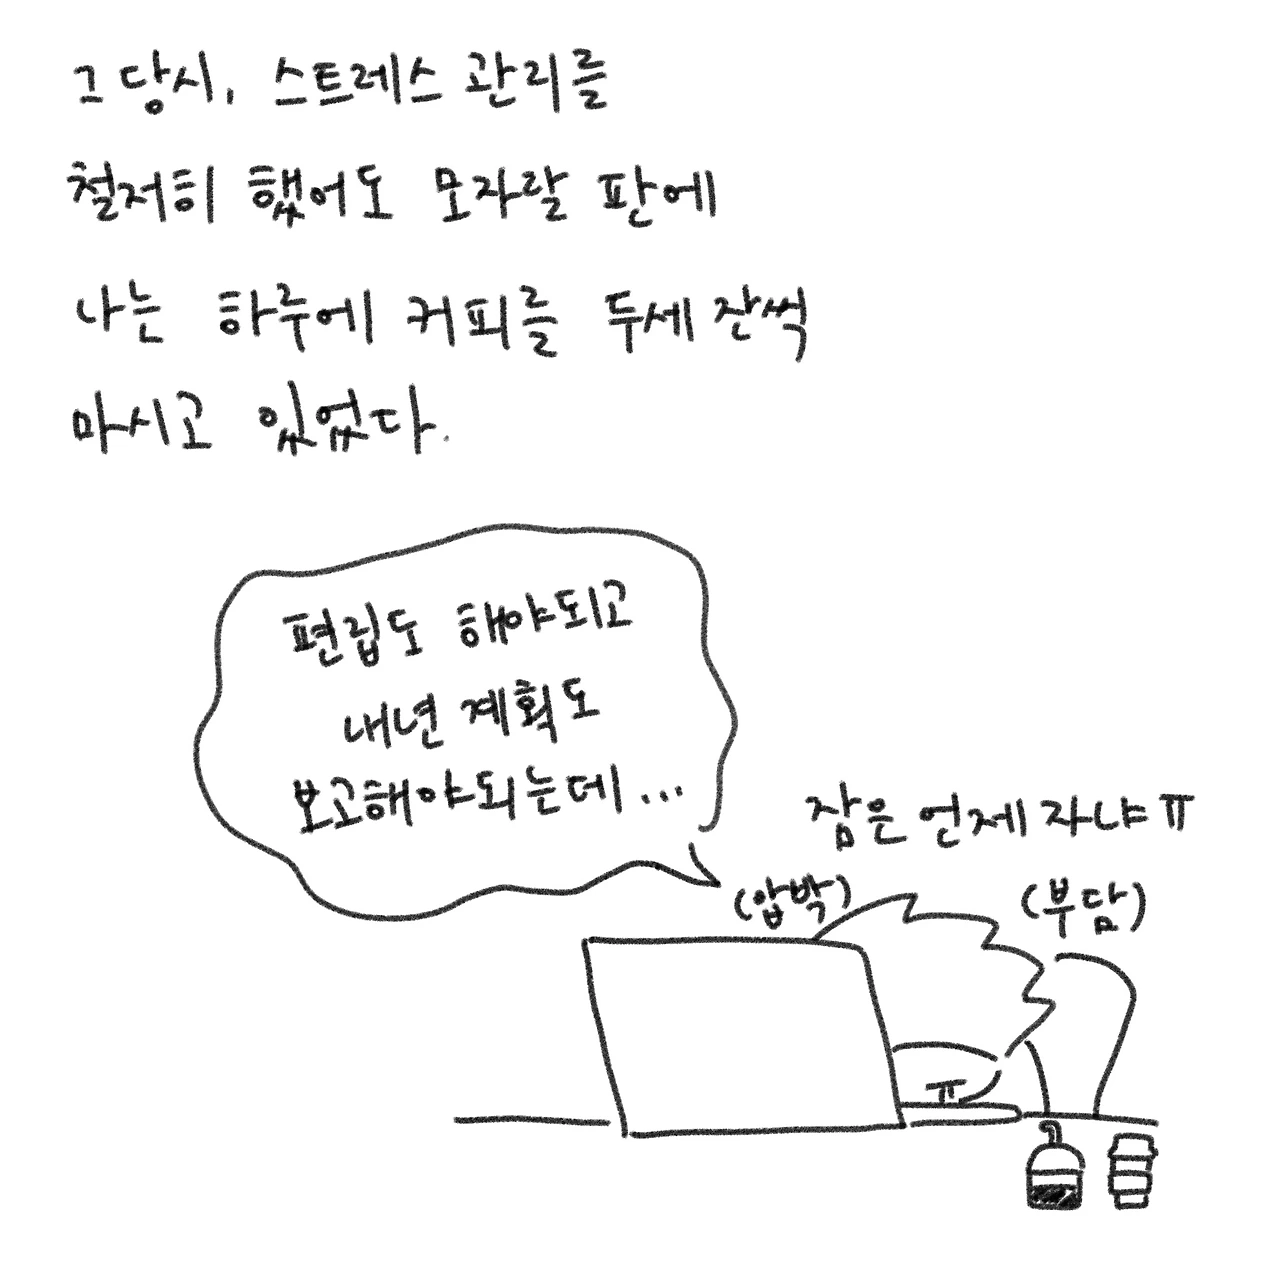 그 당시, 스트레스 관리를
철저히 했어도 모자랄 판에
나는 하루에 커피를 두세 잔씩
마시고 있었다.
편립도 해야되고
내년 계획도
보고해야되는데...
잠은 언제 자냐ㅠ
(압박)
(부담)
ㅠ